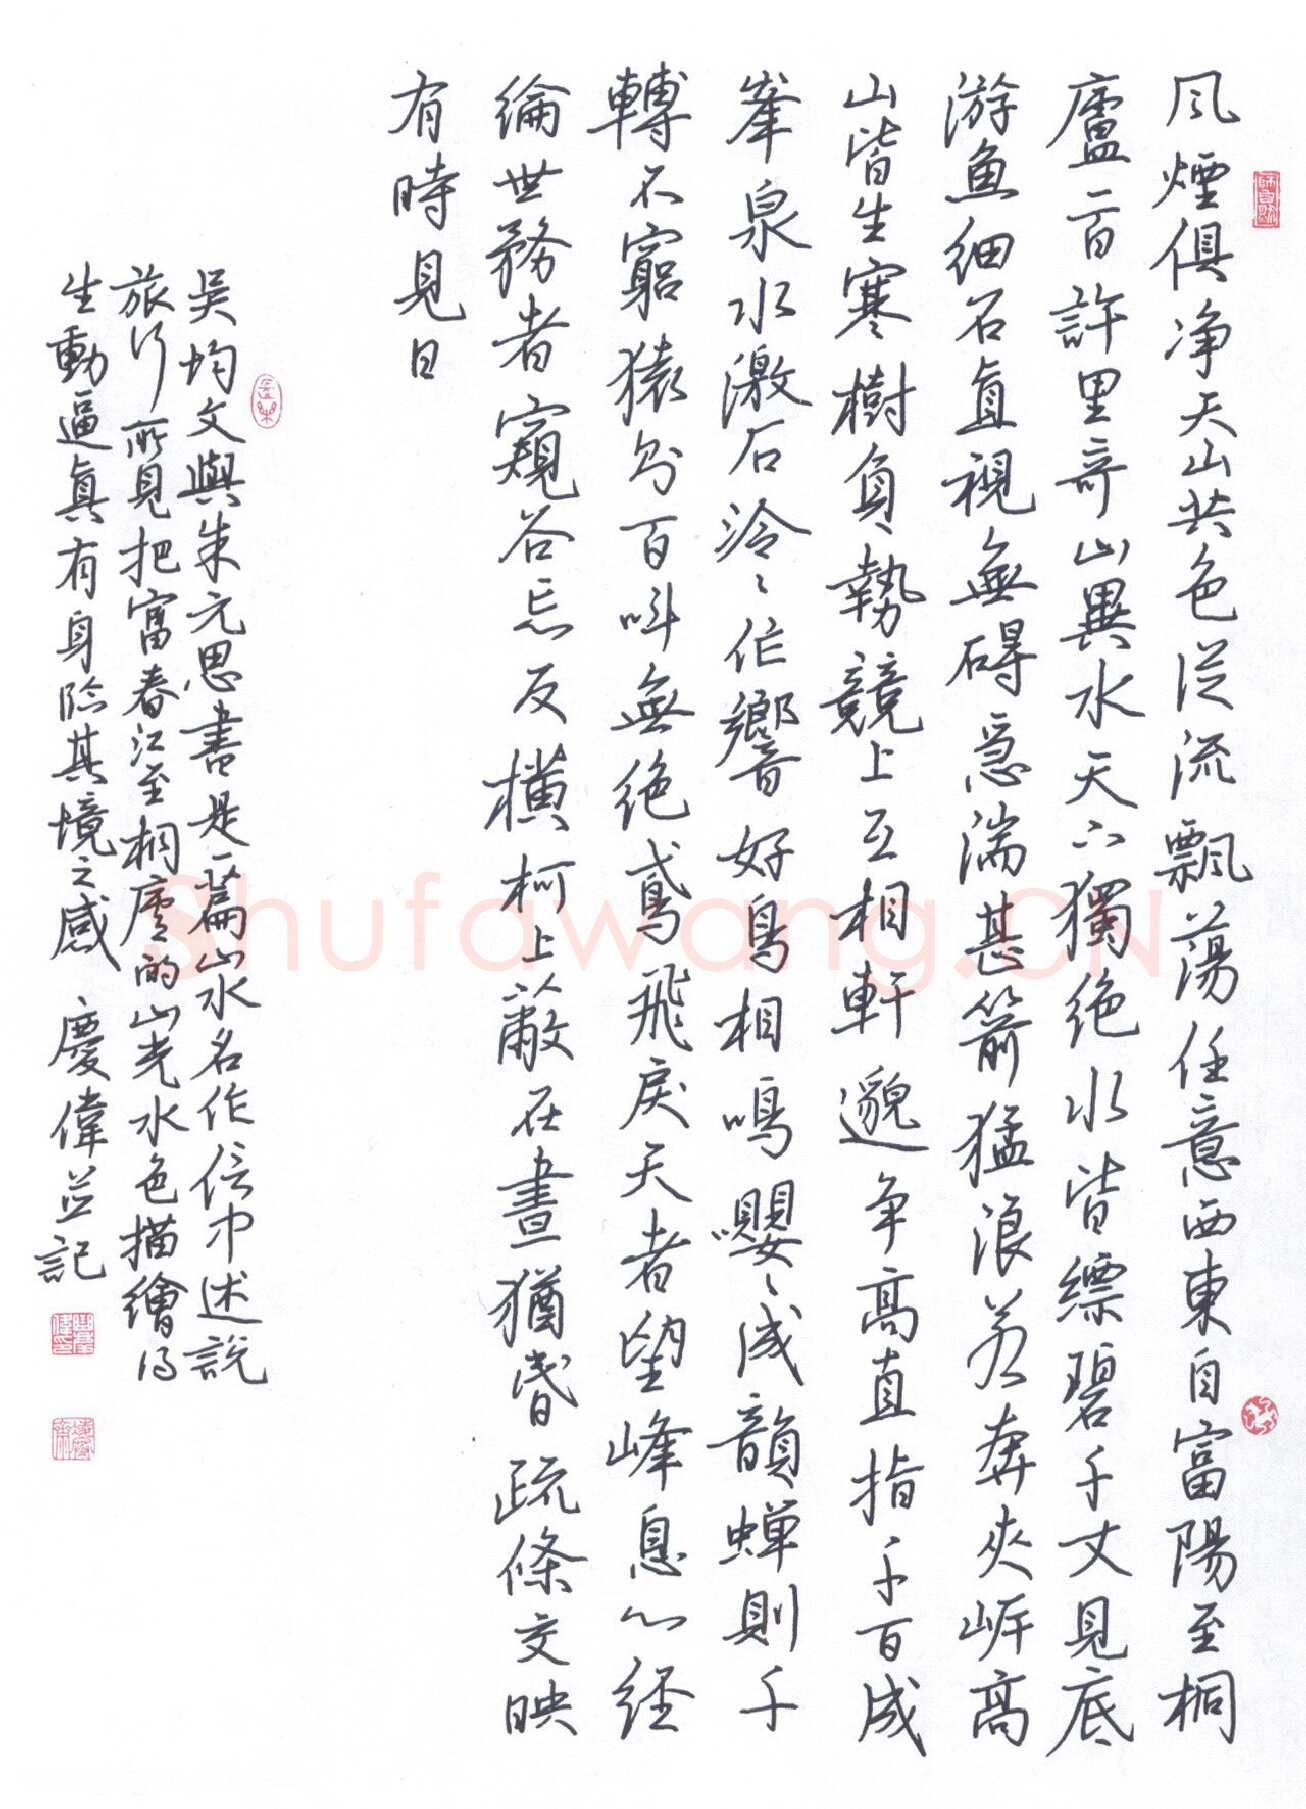 风煙俱净天山共色從流飄蕩任意西東自富陽至桐
廬一百許里奇山異水天下獨绝水皆縹碧千丈見底
游鱼细石直視無碍急湍甚箭猛浪若奔夾岸高
山皆生寒樹負勢競上互相軒邈争高直指千百成
峯泉水激石泠〻作響好鳥相鳴嚶〻成韻蝉則千
轉不窮猿則百叫無绝鳶飛戾天者望峰息心经
綸世務者窺谷忘反横柯上蔽在晝猶昏疏條交映
有時見日
吴均文與朱元思書是一篇山水名作信中述説
旅行所見把富春江至桐廬的山光水色描繪得
生動逼真有身臨其境之感 慶偉并記
Shufawang.CN